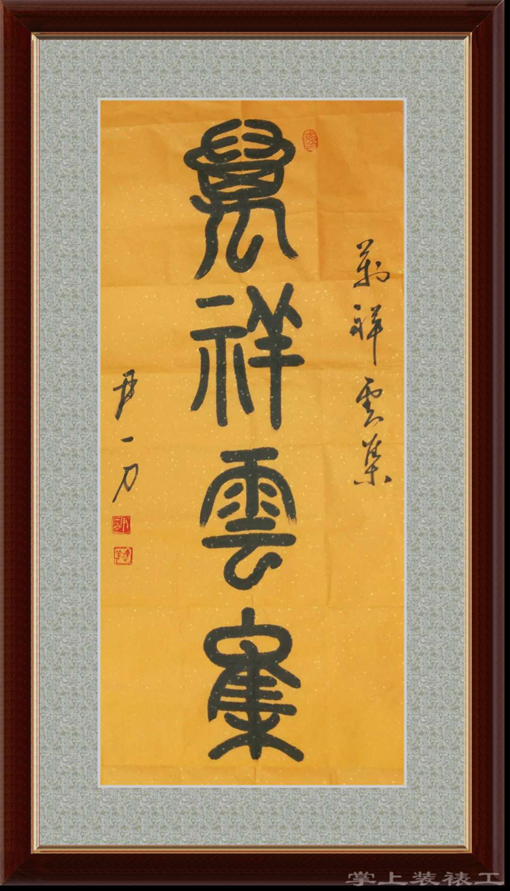 萬祥雲集
萬祥雲集
尹一刀
掌上装裱工